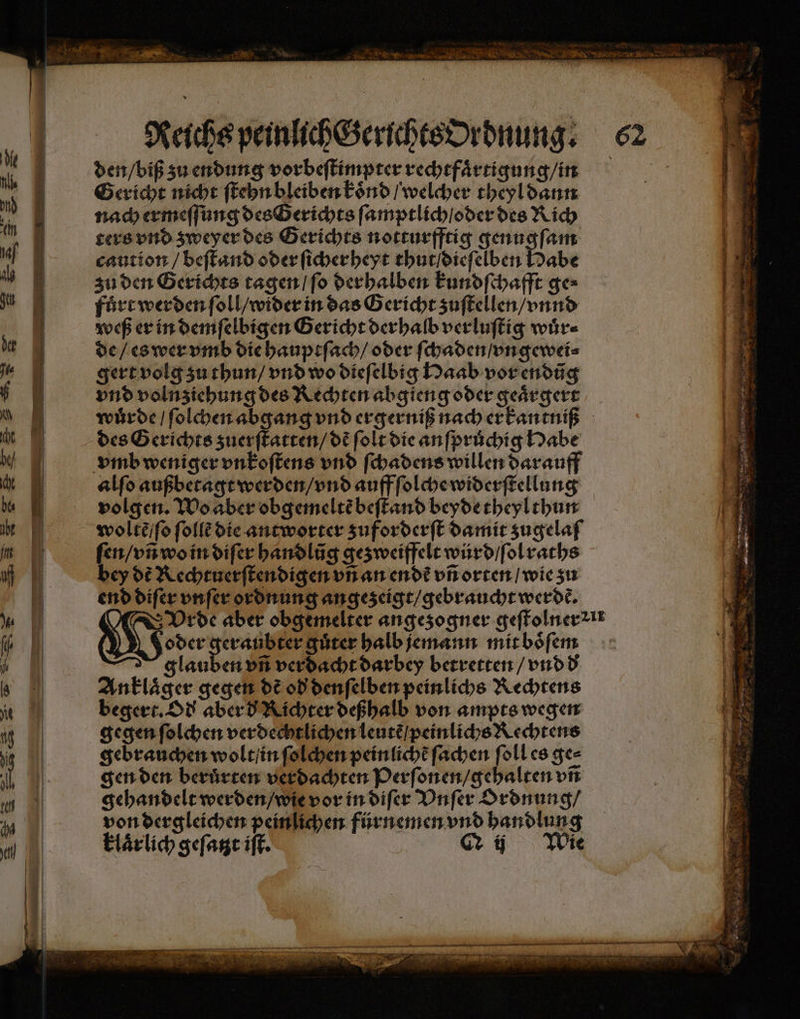 Reichs peinlich Gerichts Ordnung. 62
den/biß zu endung vorbeſtimpter rechtfaͤrtigung/in
Gericht nicht ſtehn bleiben koͤnd/welcher theyl dann
nach ermeſſung des Gerichts ſamptlich/oder des Rich
ters vnd zweyer des Gerichts notturfftig genugſam
caution/beſtand oder ſicherheyt thut/dieſelben Habe
zu den Gerichts tagen/ſo derhalben kundſchafft ge⸗
fuͤrt werden ſoll/wider in das Gericht zuſtellen/vnnd
weß er in demſelbigen Gericht derhalb verluſtig wuͤr⸗
de/es wer vmb die hauptſach/oder ſchaden/vngewei⸗
gert volg zu thun/vnd wo dieſelbig Haab vor endũg
vnd volnziehung des Rechten abgieng oder geaͤrgert
wuͤrde/ſolchen abgang vnd ergerniß nach erkantniß
des Gerichts zuerſtatten/dẽ ſolt die anſpruͤchig Habe
vmb weniger vnkoſtens vnd ſchadens willen darauff
alſo außbetagt werden/vnd auff ſolche widerſtellung
volgen. Wo aber obgemeltẽ beſtand beyde theyl thun
woltẽ/ſo ſollẽ die antworter zuforderſt damit zugelaſ
ſen/vñ wo in diſer handlũg gezweiffelt wuͤrd/ſol raths
bey dẽ Rechtuerſtendigen vñ an endẽ vñ orten/wie zu
end diſer vnſer ordnung angezeigt/gebraucht werdẽ.
WVrde aber obgemelter angezogner geſtolner 211
oder geraubter guͤter halb jemann mit boͤſem
glauben vñ verdacht darbey betretten/vnd d
Anklaͤger gegen dẽ od denſelben peinlichs Rechtens
begert. Od aber d Richter deßhalb von ampts wegen
gegen ſolchen verdechtlichen leutẽ/peinlichs Rechtens
gebrauchen wolt/in ſolchen peinlichẽ ſachen ſoll es ge⸗
gen den beruͤrten verdachten Perſonen/gehalten vñ
gehandelt werden/wie vor in diſer Vnſer Ordnung/
von dergleichen peinlichen fuͤrnemen vnd handlung
klaͤrlich geſatzt iſt. Q ij Wie